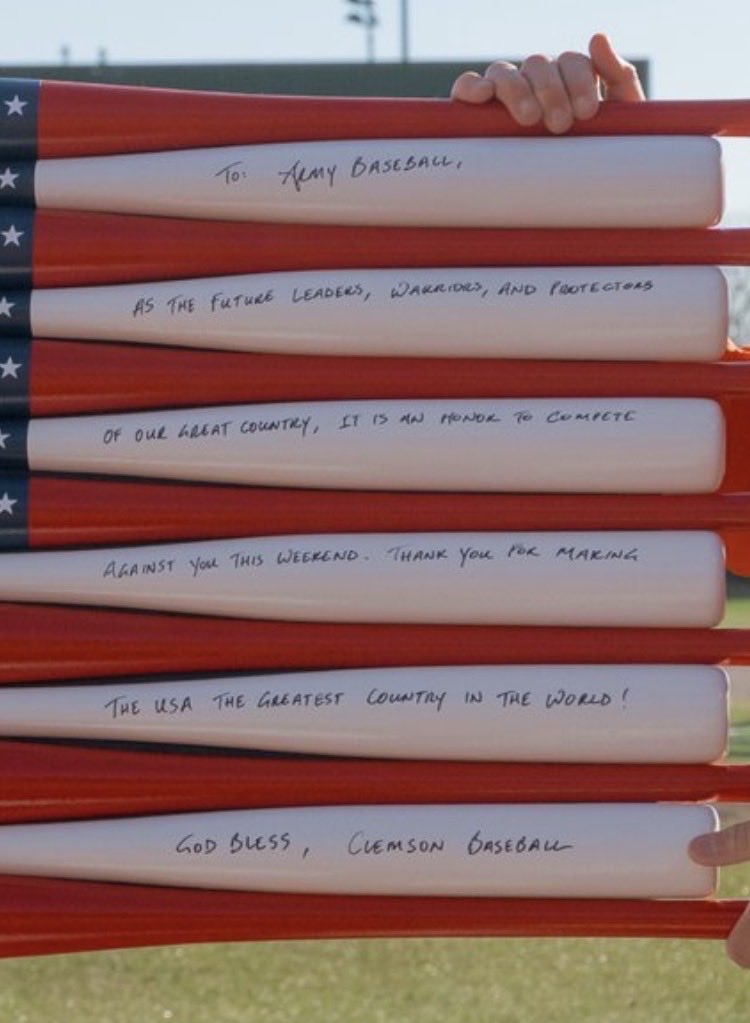 To: Army Baseball,
As the future leaders, warriors, and protectors
of our great country, it is an honor to compete
against you this weekend. Thank you for making
the USA the greatest country in the world!
God Bless, Clemson Baseball